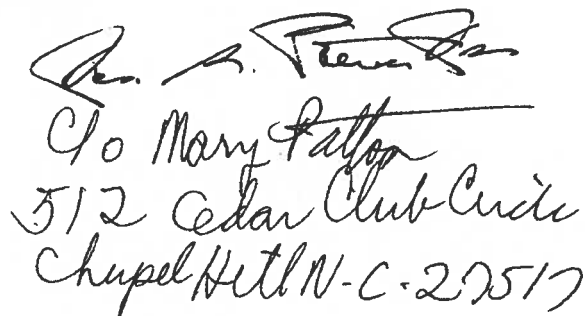 c/o Mary Patton
512 Cedar Club Circle
Chapel Hill N-C-27517